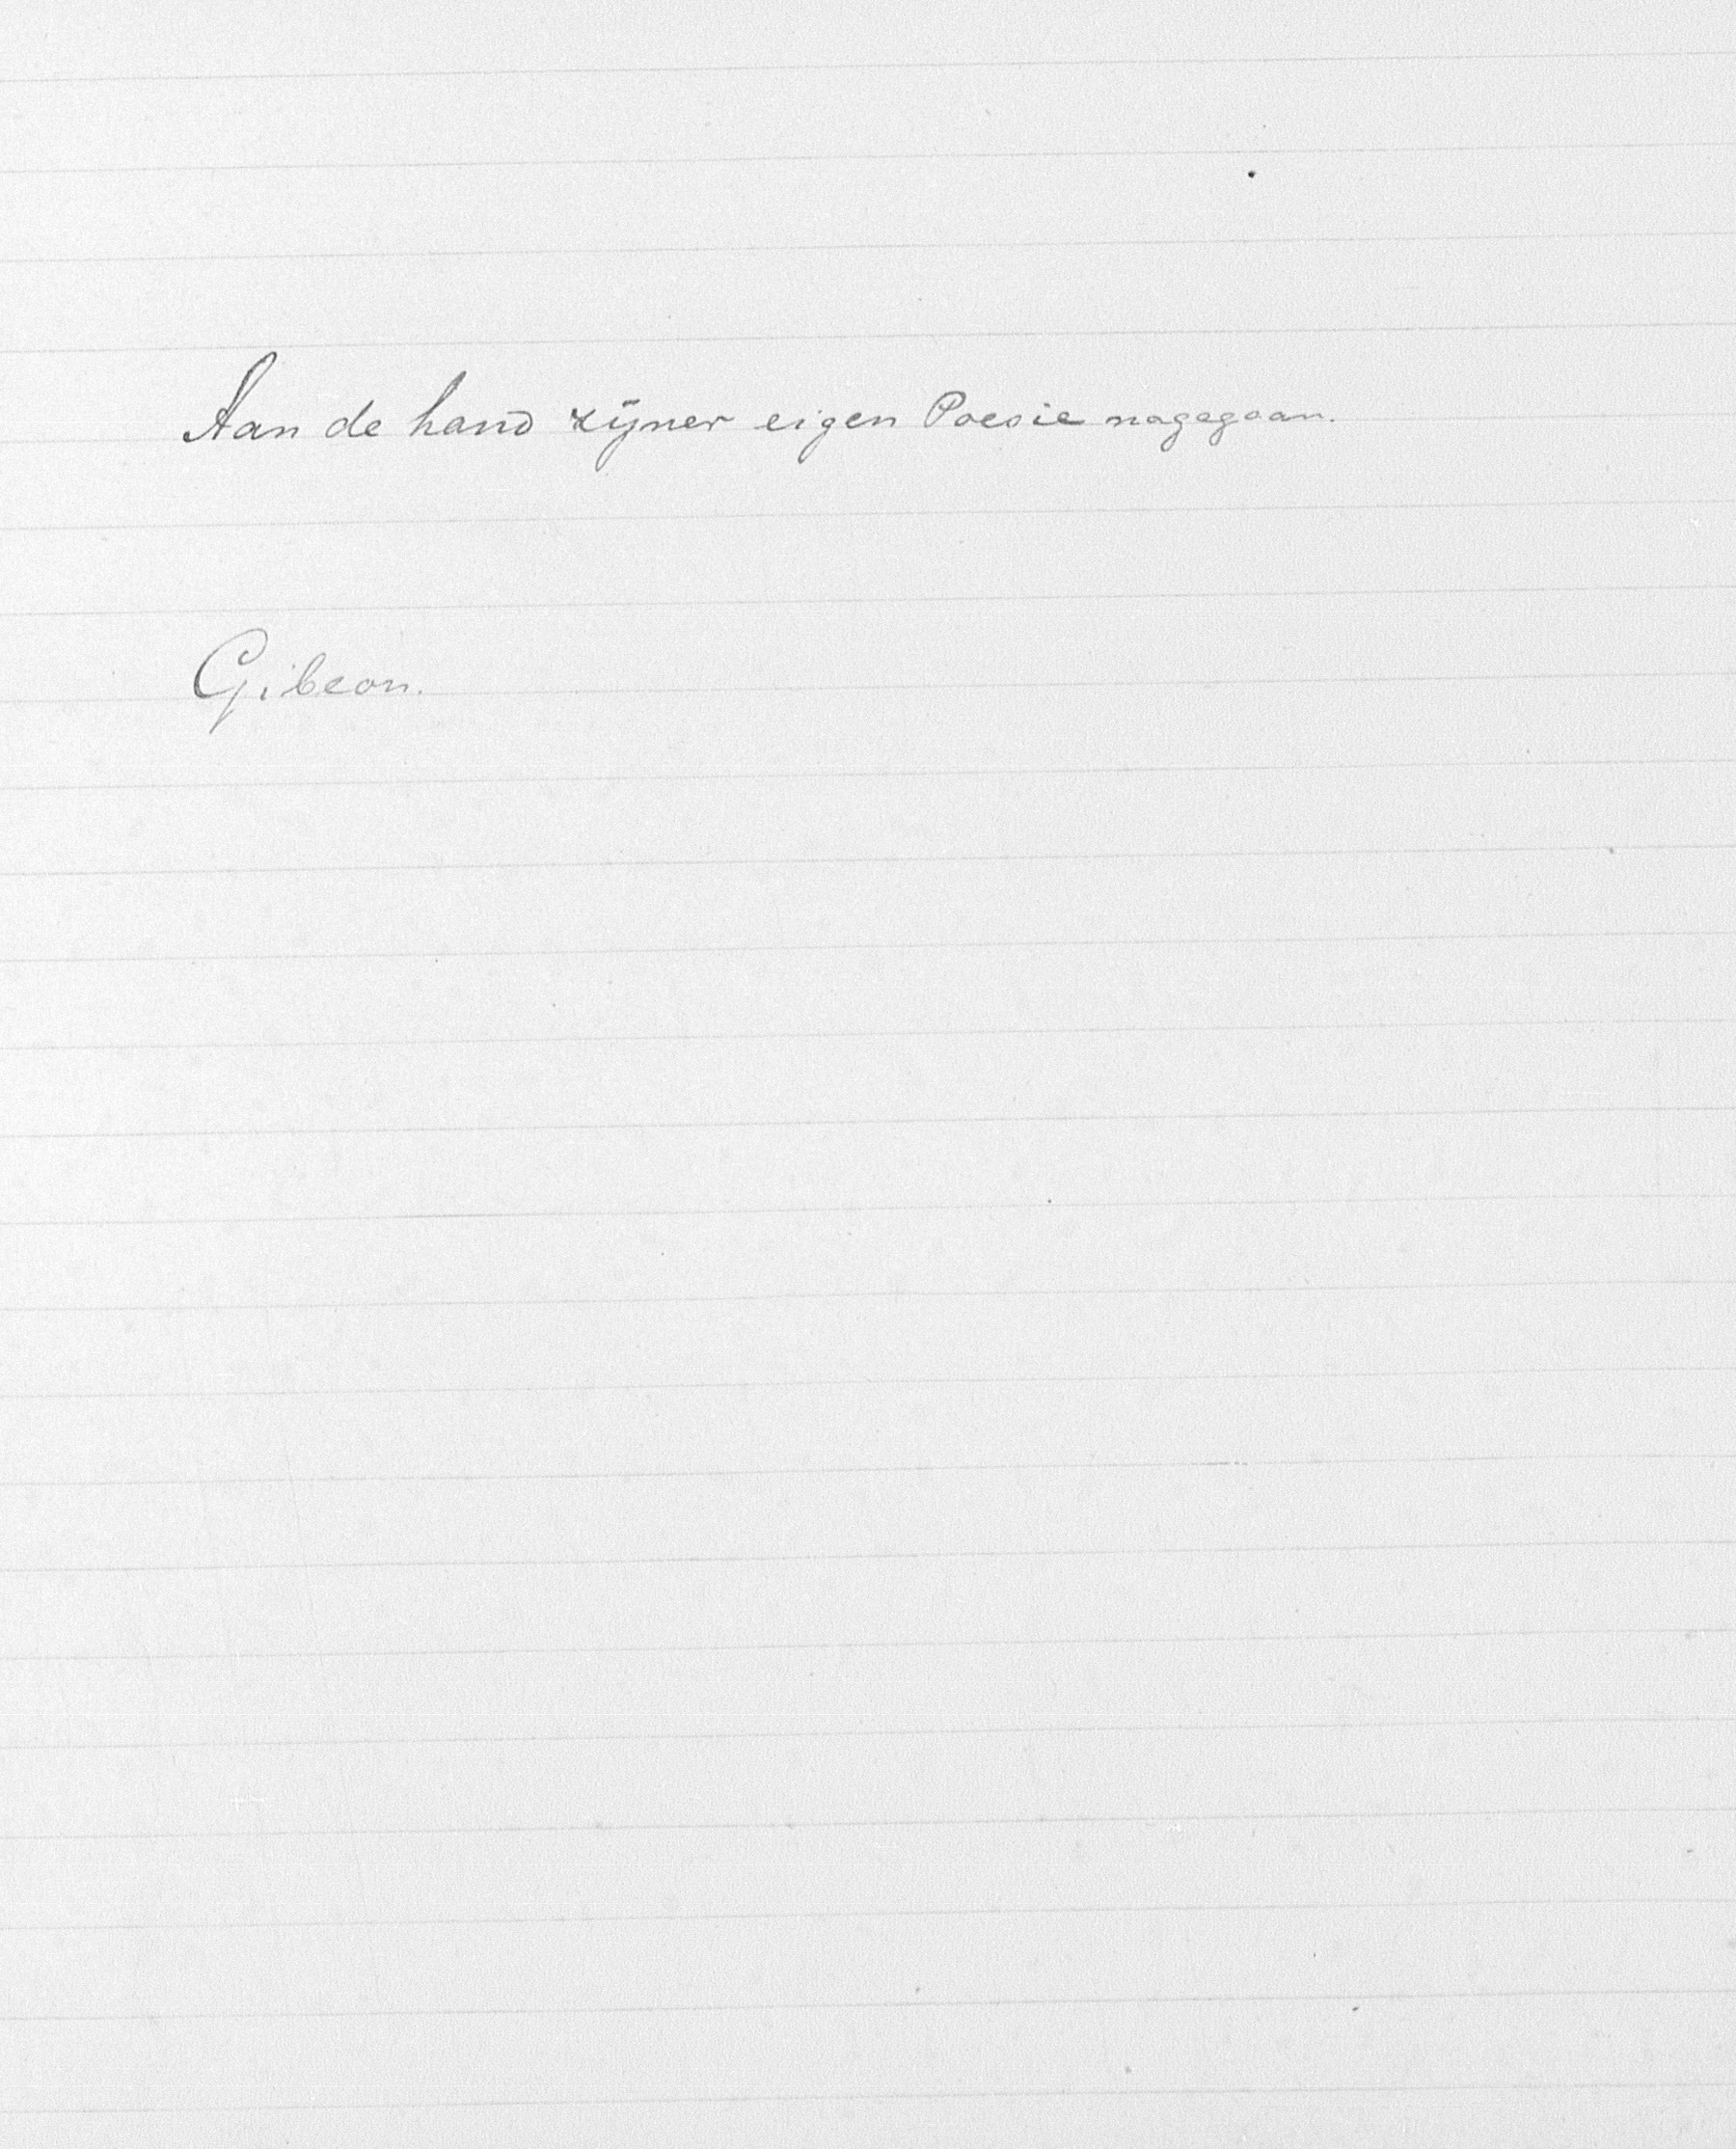 Aan de hand zijner eigen Poesie nagegaan.
Gibeon.